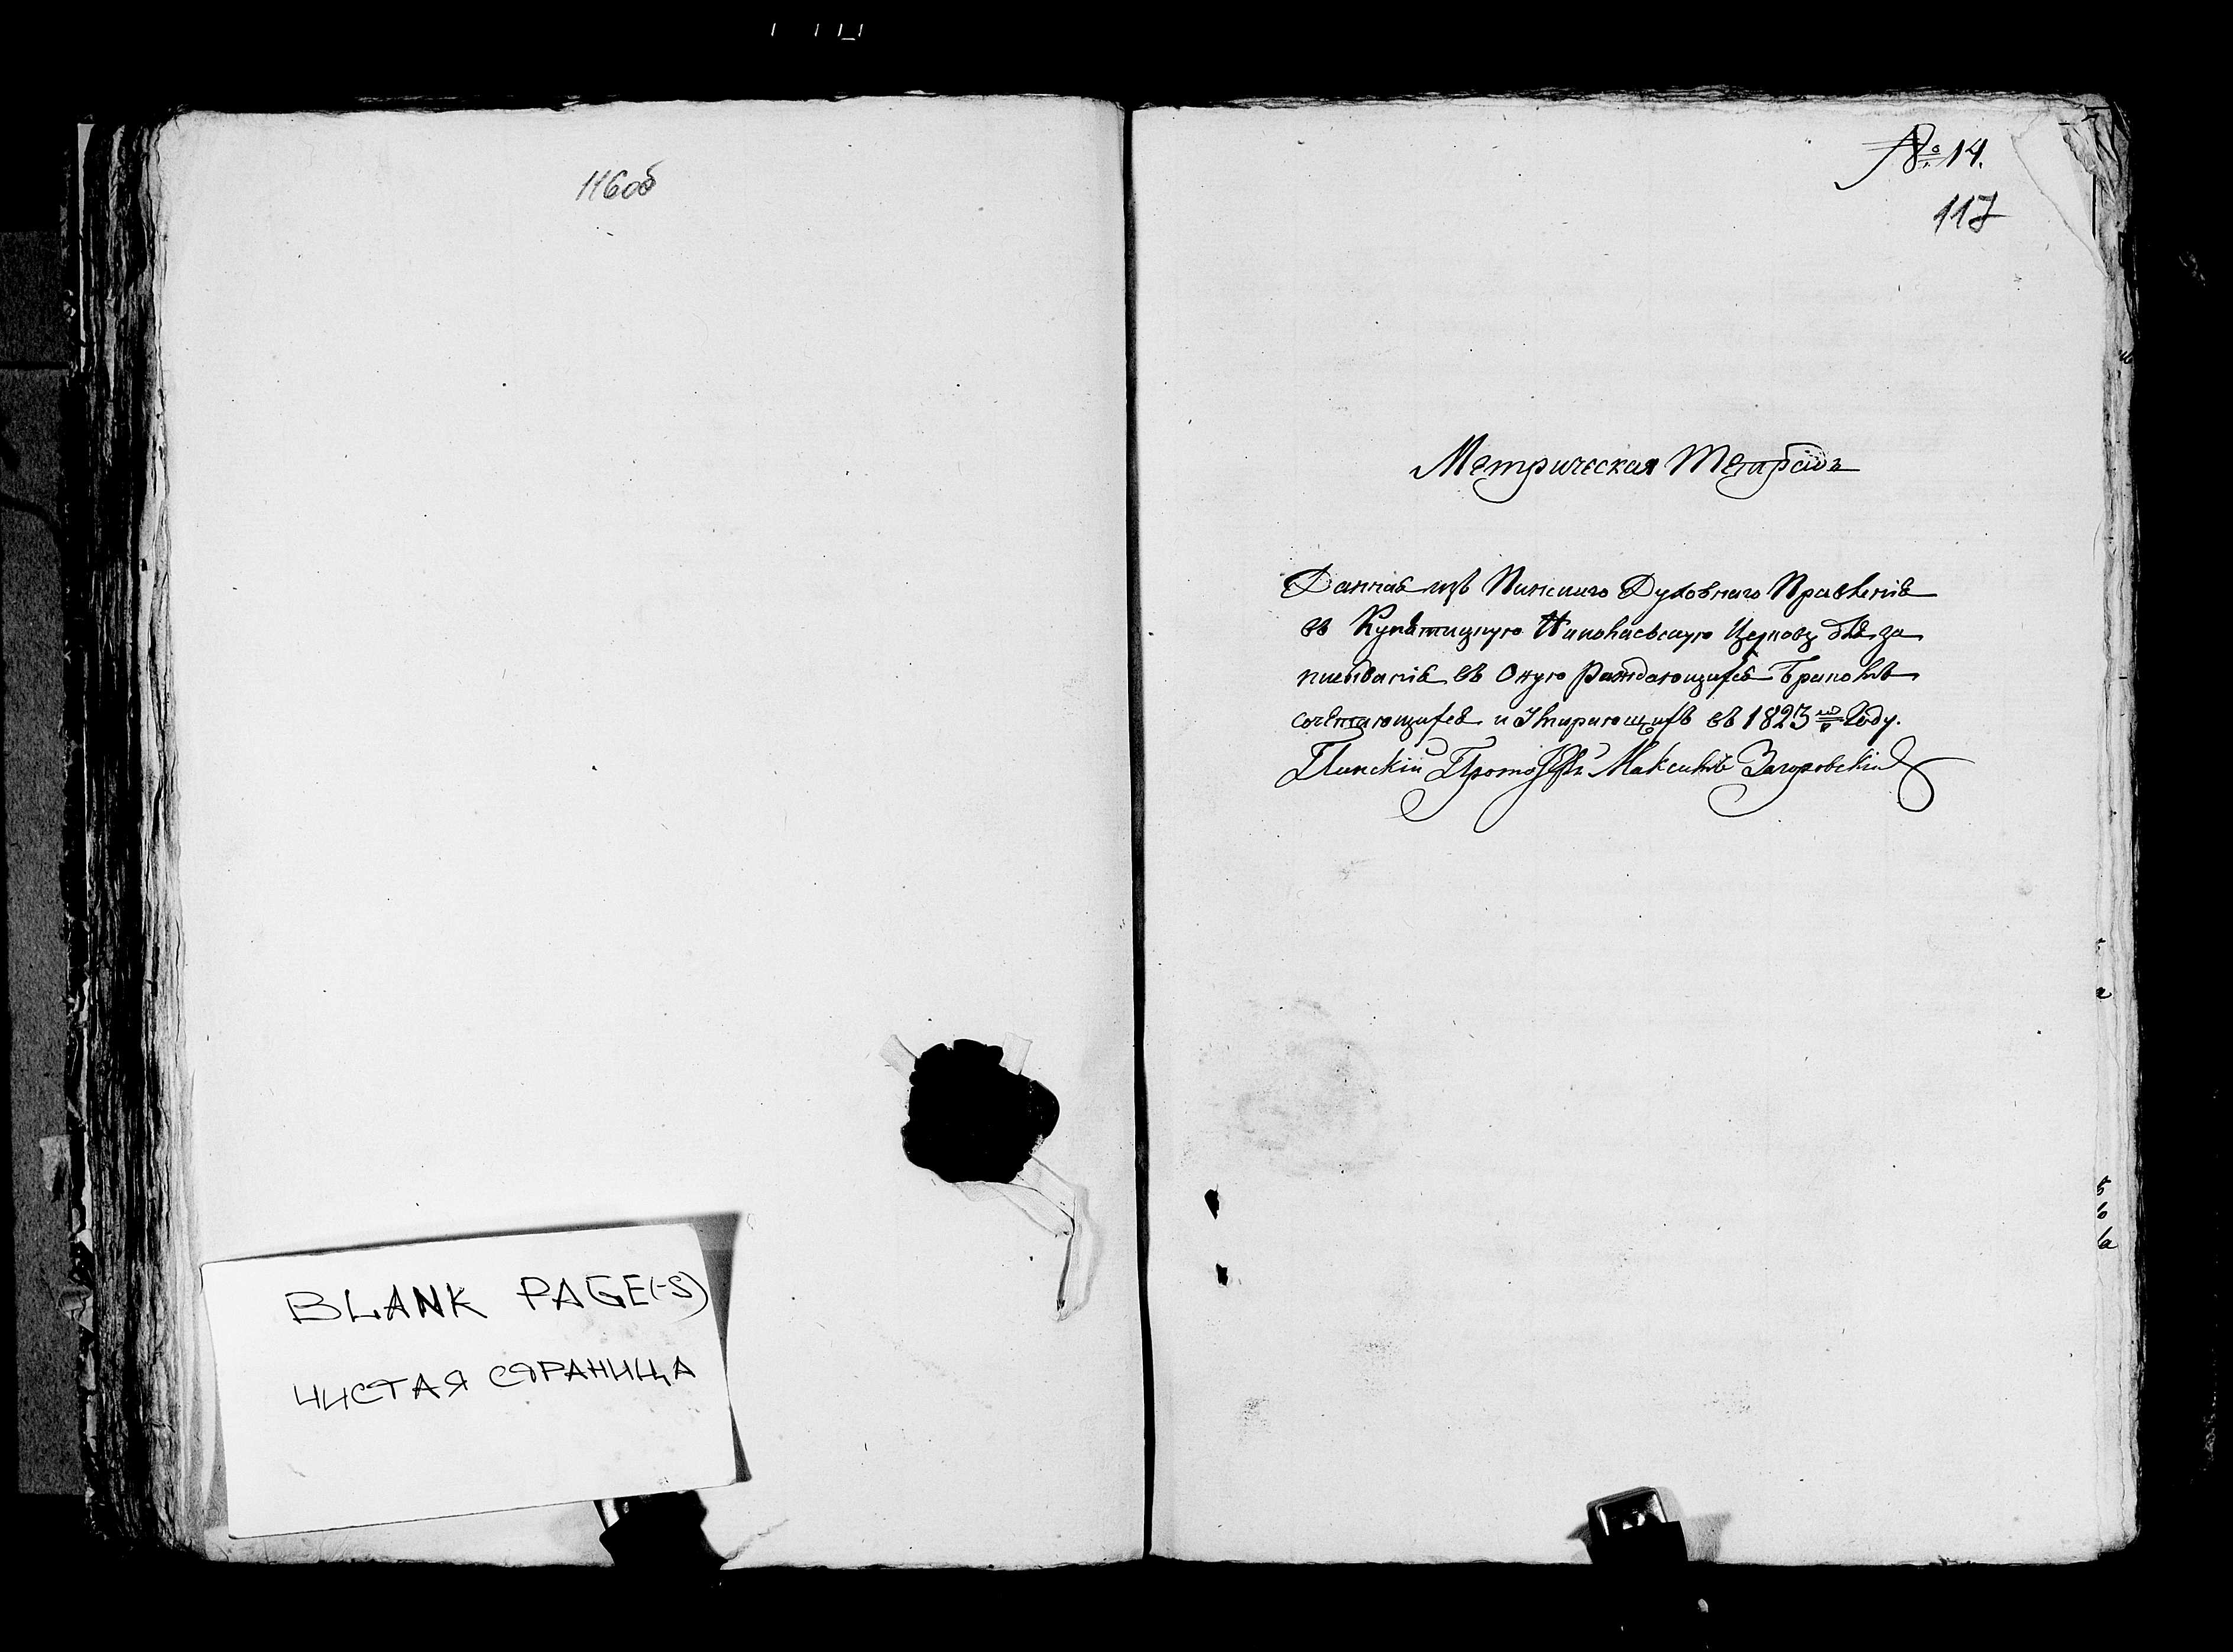 116об
BLANK PAGE(-S)
ЧИСТАЯ СТРАНИЦА
№ 14.
117
Метрическая Тетрадь
Данная изъ Пинскаго Духовнаго Правленія
въ Купятицкую Николаевскую Церковь для за
писыванія въ Оную Раждающихся Бракомъ
сочетающихся и Умирающихъ въ 1823 мъ Году.
Пинскій Максимъ Загоровскій